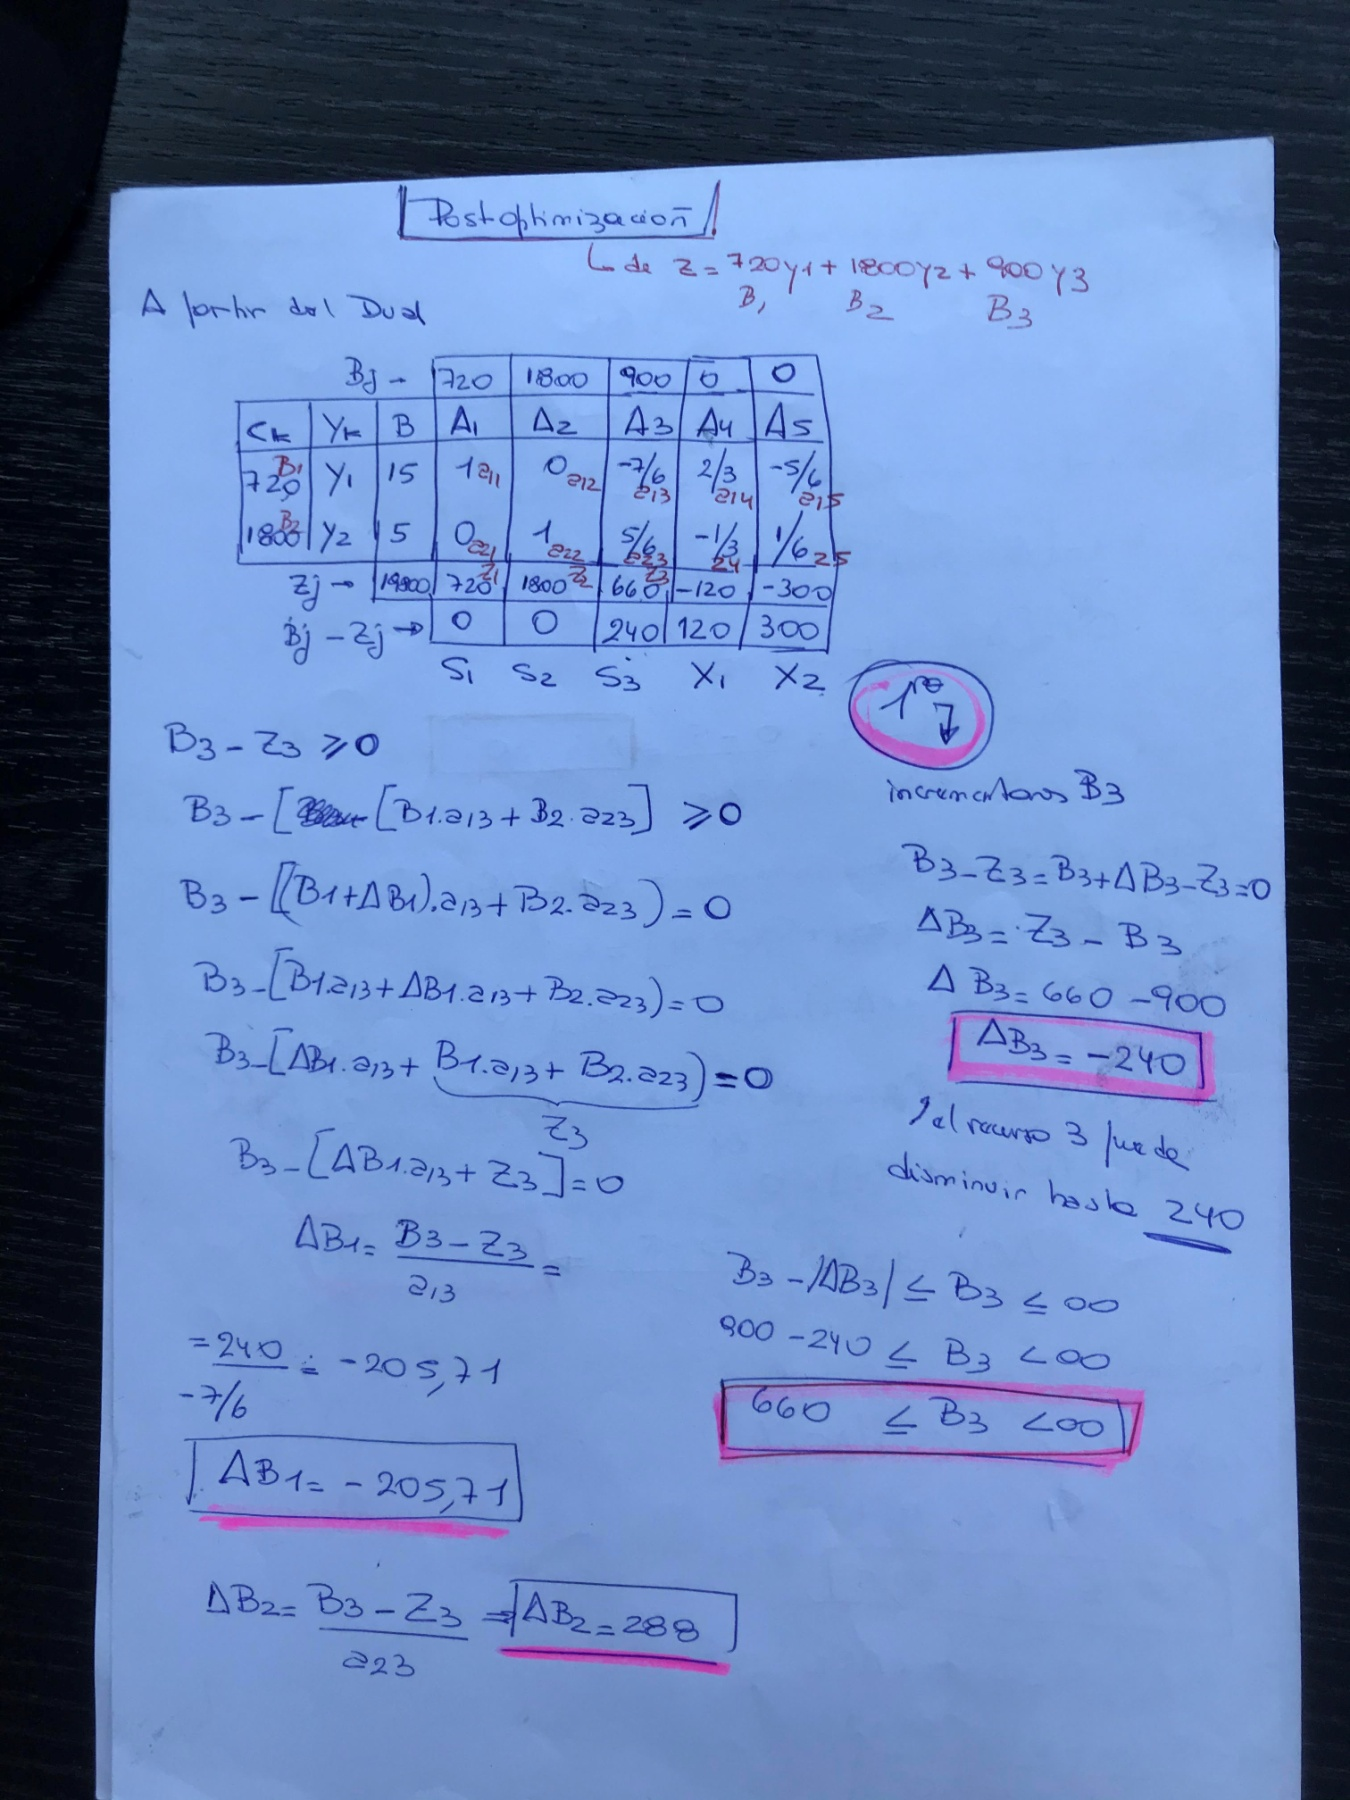 Postoptimización
↳ de Z = 720y1 + 1800y2 + 900y3
B1 B2 B3
A partir del Dual
Bj → 720 1800 900 0 0
Ck Yk B A1 A2 A3 A4 A5
720 B1 Y1 15 1 a11 0 a12 -7/6 a13 2/3 a14 -5/6 a15
1800 B2 Y2 5 0 a21 1 a22 5/6 a23 -1/3 24 1/6 25
Zj → 19800 720 Z1 1800 Z2 660 Z3 -120 -300
Bj - Zj → 0 0 240 120 300
S1 S2 S3 X1 X2
B3 - Z3 ≥ 0
B3 - [ [B1.a13 + B2.a23] ≥ 0
B3 - [(B1+ΔB1).a13 + B2.a23) = 0
B3 - [B1.a13 + ΔB1.a13 + B2.a23) = 0
B3 - [ΔB1.a13 + B1.a13 + B2.a23) = 0
Z3
B3 - [ΔB1.a13 + Z3] = 0
ΔB1 = B3 - Z3 / a13 =
= 240 / -7/6 = -205,71
ΔB1 = -205,71
ΔB2 = B3 - Z3 / a23 = ΔB2 = 288
1ro
incrementamos B3
B3 - Z3 = B3 + ΔB3 - Z3 = 0
ΔB3 = Z3 - B3
ΔB3 = 660 - 900
ΔB3 = -240
el recurso 3 puede
disminuir hasta 240
B3 - |ΔB3| ≤ B3 ≤ ∞
900 - 240 ≤ B3 < ∞
660 ≤ B3 < ∞